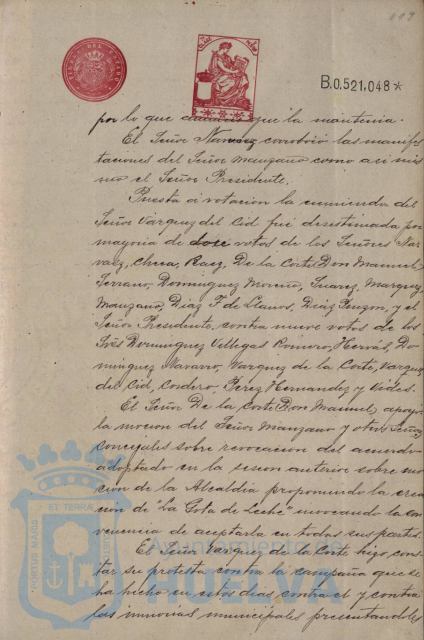 119
TIMBRE DEL ESTADO
B.0.521,048*
por lo que que la mantenia.
El Señor Narvaez corroboró las manifes
taciones del Señor Manzano como asi mis
mo el Señor Presidente.
Puesta á votación la enmienda del
Señor Vázquez del Cid fué desestimada por
mayoria de doce votos de los Señores Nar
vaez, Checa, Raez, De la Corte Don Manuel,
Serrano, Dominguez Moreno, Suarez, Marquez,
Manzano, Diaz F. de Llanos, Diaz Pinzon, y el
Señor Presidente, contra nueve votos de los
Srés Dominguez Villegas Romero, Hervás, Do
minguez Navarro, Vazquez de la Corte, Vazquez
del Cid, Cordero, Pérez Hernandez y Vides.
El Señor De la Corte Don Manuel, apoyó
la mocion del Señor Manzano y otros Señores
Concejales sobre revocacion del acuerdo
adoptado en la sesion anterior sobre mo
cion de la Alcaldia proponiendo la crea
cion de "La Gota de Leche" invocando la con
veniencia de aceptarla en todas sus partes.
El Señor Vazquez de la Corte hizo cons
tar su protesta contra la campaña que se
ha hecho en estos dias contra el y contra
las minorias municipales presentandoles
PORTUS MARIS ET TERRAE CUSTODIA
Ayuntamiento de
HUELVA